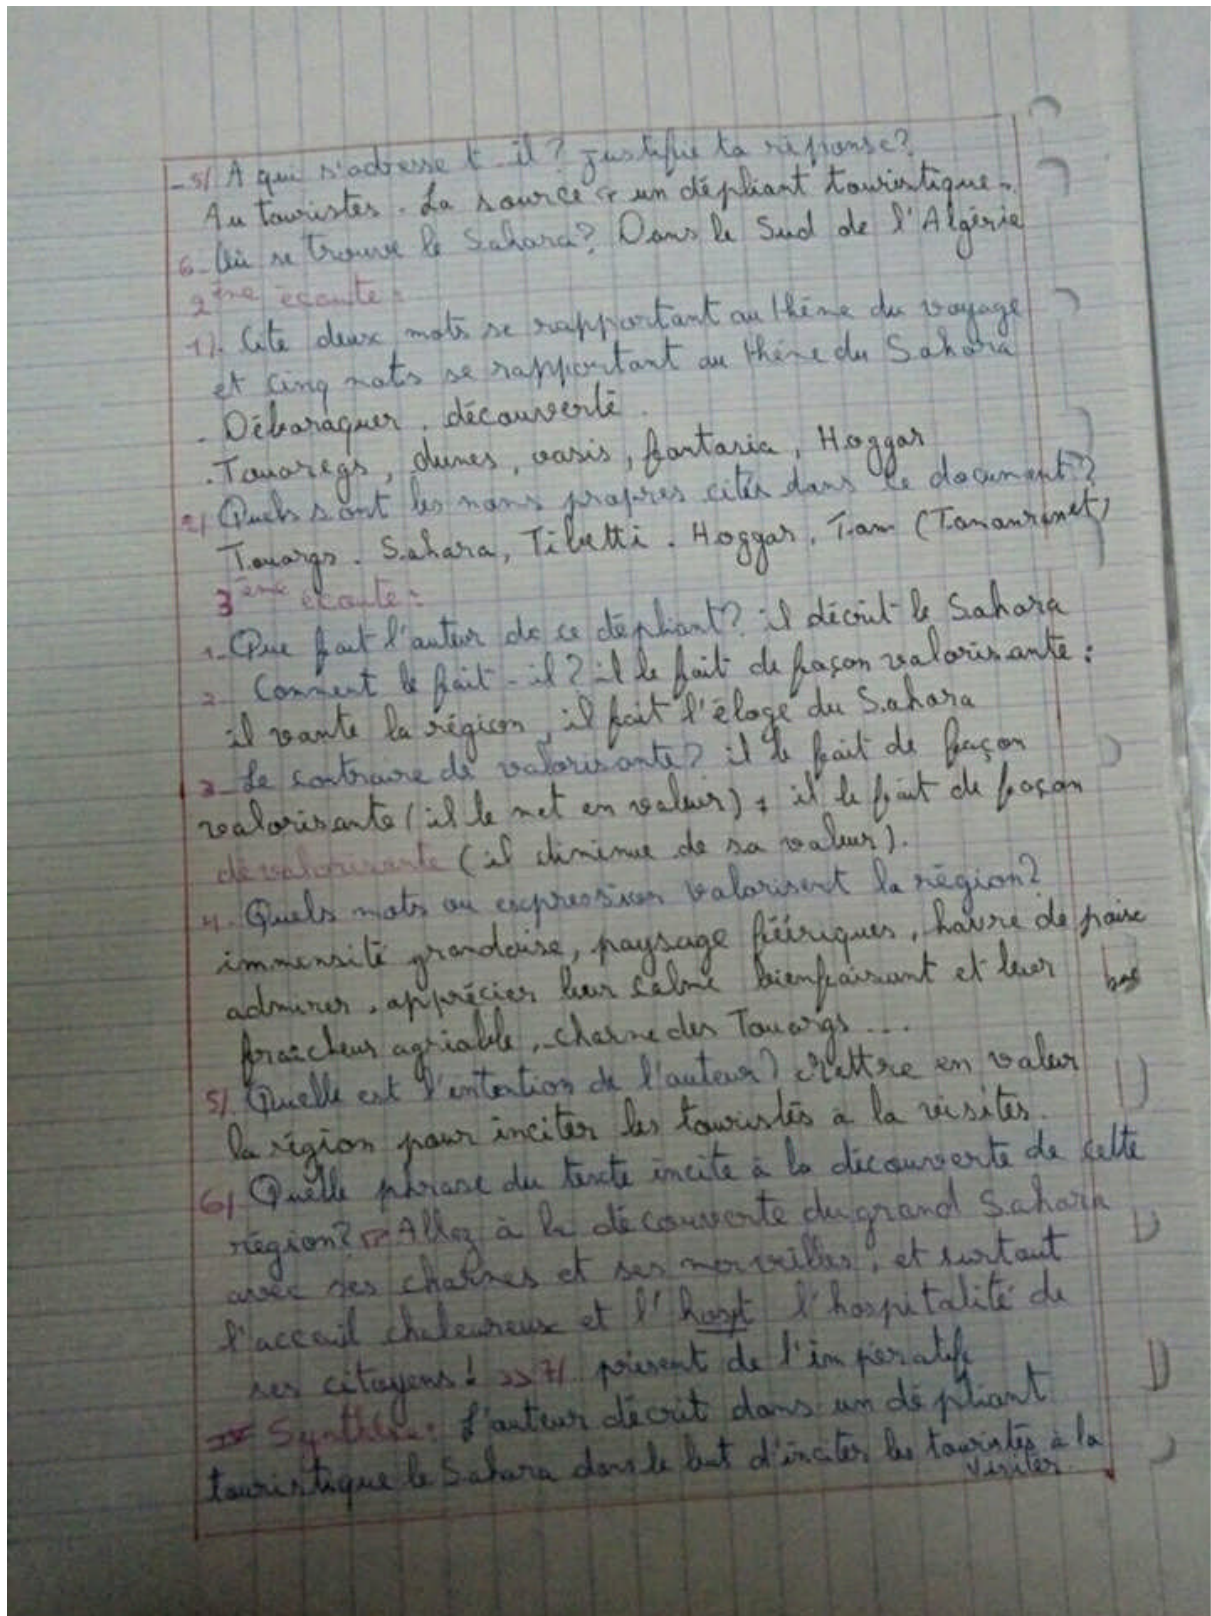 -5/ A qui s'adresse t-il? justifie ta réponse?
Au touristes. La source un dépliant touristique.
6- Où se trouve le Sahara? Dans le Sud de l'Algérie
2ème écoute:
1). Cite deux mots se rapportant au thème du voyage
et cinq mots se rapportant au thème du Sahara
. Débaraquer. découverte.
. Touaregs, dunes, oasis, fantasia, Hoggar
2/ Quels sont les noms propres cités dans le document?
Touargs. Sahara, Tibetti. Hoggar, Tam (Tamanrasset)
3ème écoute:
1- Que fait l'auteur de ce dépliant? il décrit le Sahara
2- Comment le fait-il? il le fait de façon valorisante:
il vante la région, il fait l'éloge du Sahara
3- Le contraire de valorisante? il le fait de façon
valorisante (il le met en valeur) ≠ il le fait de façon
dévalorisante (il diminue de sa valeur).
4- Quels mots ou expression valorisent la région?
immensité grandoise, paysage féériques, havre de paix
admirer, apprécier leur calme bienfaisant et leur
fraîcheur agriable, charme des Touargs...
5/. Quelle est l'entention de l'auteur? Mettre en valeur
la région pour inciter les touristes à la visites.
6/ Quelle phrase du texte incite à la découverte de cette
région? << Allez à la découverte du grand Sahara
avec ses charmes et ses merveilles, et surtout
l'acceuil chaleureux et l'hospt l'hospitalité de
ses citoyens! >> 7/. présent de l'impératif
Synthèse: L'auteur décrit dans un dépliant
touristique le Sahara dans le but d'inciter les touristes à la
visiter.